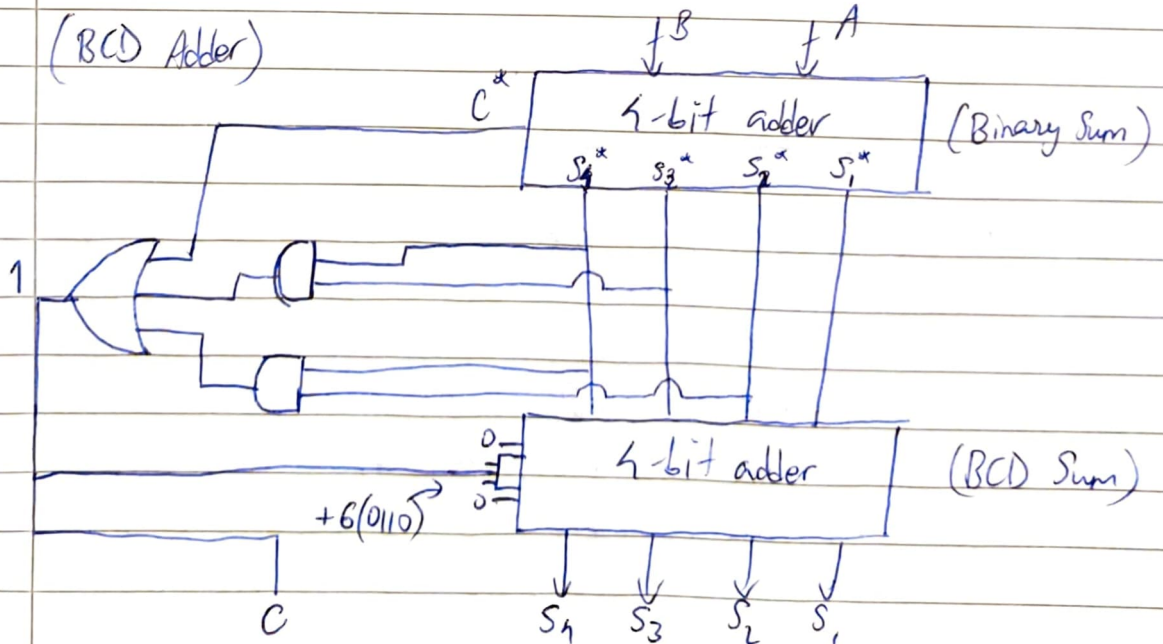 (BCD Adder)
B A
C*
4-bit adder
(Binary Sum)
S4* S3* S2* S1*
1
0
4-bit adder
(BCD Sum)
0
+6(0110)
C
S4 S3 S2 S1